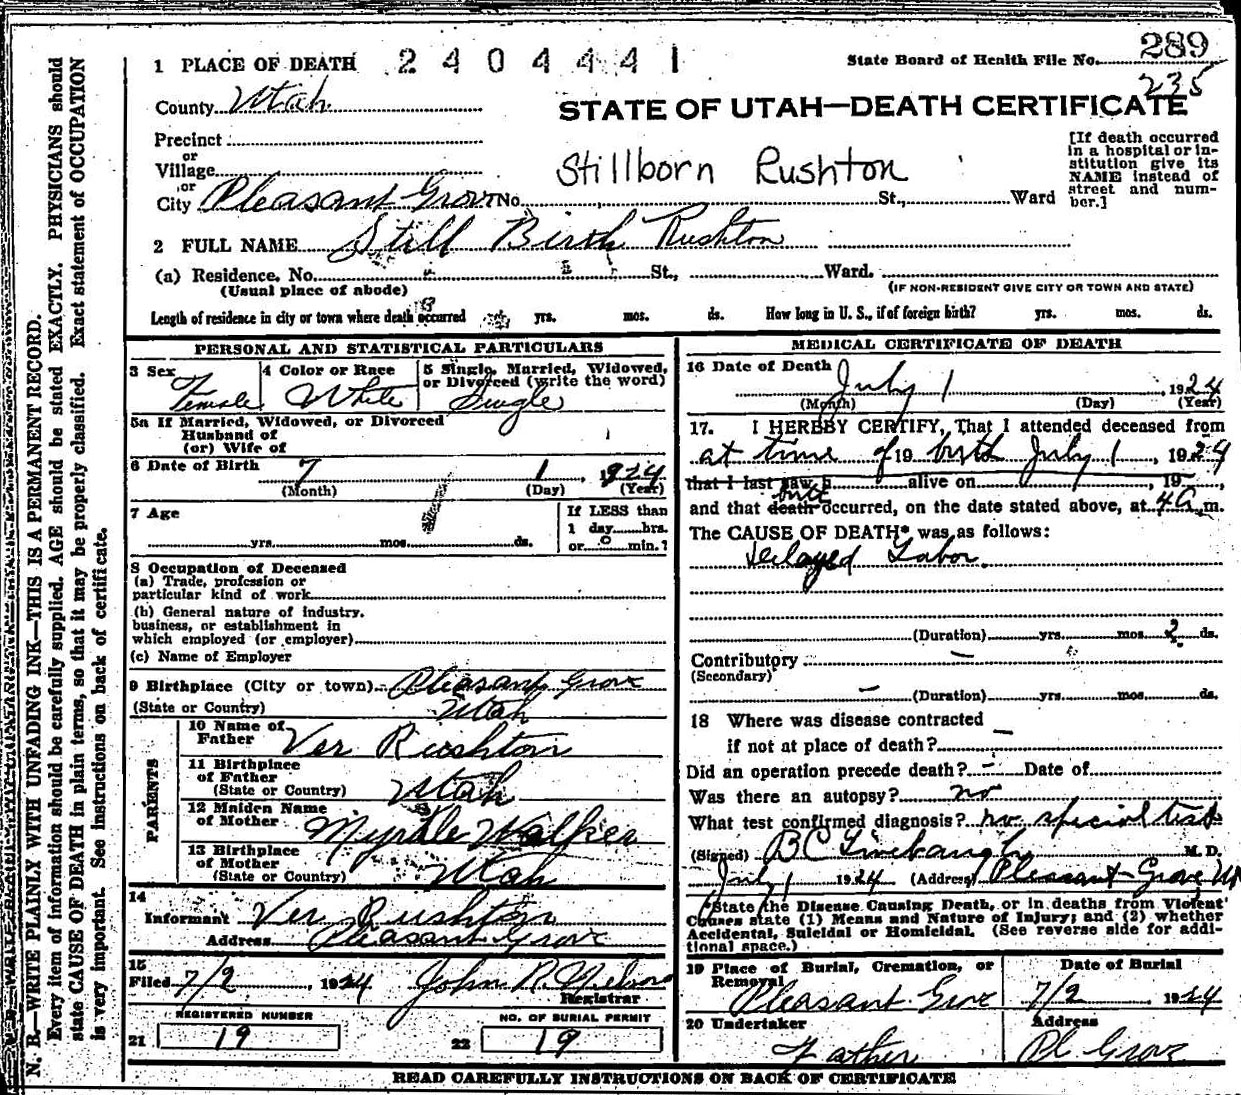 289
1 PLACE OF DEATH 2404441 State Board of Health File No.
235
County Utah
STATE OF UTAH—DEATH CERTIFICATE
Precinct
or
Village
or
City Pleasant Grove No. St., Ward
Stillborn Rushton
[If death occurred in a hospital or in-
stitution give its
NAME instead of
street and num-
ber.]
2 FULL NAME Still Birth Rushton
(a) Residence. No. St., Ward.
(Usual place of abode) (IF NON-RESIDENT GIVE CITY OR TOWN AND STATE)
Length of residence in city or town where death occurred yrs. mos. ds. How long in U. S., if of foreign birth? yrs. mos. ds.
PERSONAL AND STATISTICAL PARTICULARS
3 Sex Female
4 Color or Race White
5 Single, Married, Widowed,
or Divorced (write the word)
Single
5a If Married, Widowed, or Divorced
Husband of
(or) Wife of
6 Date of Birth 7 1, 1924
(Month) (Day) (Year)
7 Age
yrs. mos. ds.
If LESS than
1 day hrs.
or 0 min.?
8 Occupation of Deceased
(a) Trade, profession or
particular kind of work
(b) General nature of industry.
business, or establishment in
which employed (or employer)
(c) Name of Employer
9 Birthplace (City or town) Pleasant Grove
(State or Country) Utah
PARENTS
10 Name of
Father Ver Rushton
11 Birthplace
of Father
(State or Country) Utah
12 Maiden Name
of Mother Myrtle Walker
13 Birthplace
of Mother
(State or Country) Utah
14
Informant Ver Rushton
Address Pleasant Grove
15
Filed 7/2, 1924 John R.
Registrar
REGISTERED NUMBER NO. OF BURIAL PERMIT
21 19 22 19
MEDICAL CERTIFICATE OF DEATH
16 Date of Death July 1, 1924
(Month) (Day) (Year)
17. I HEREBY CERTIFY, That I attended deceased from
at time of 19 birth July 1, 1924
that I last saw h alive on, 19,
birth
and that death occurred, on the date stated above, at 4 a.m.
The CAUSE OF DEATH* was as follows:
Delayed Labor.
(Duration) yrs. mos. 2 ds.
Contributory —
(Secondary)
— (Duration) yrs. mos. ds.
18 Where was disease contracted
if not at place of death? —
Did an operation precede death? — Date of
Was there an autopsy? no
What test confirmed diagnosis? no special test
(Signed) BC Linebaugh M. D.
July 1 1924 (Address) Pleasant Grove Ut
*State the Disease Causing Death, or in deaths from Violent
Causes state (1) Means and Nature of Injury; and (2) whether
Accidental, Suicidal or Homicidal. (See reverse side for addi-
tional space.)
19 Place of Burial, Cremation, or
Removal
Pleasant Grove
Date of Burial
7/2 1924
20 Undertaker
Father
Address
Pl Grove
READ CAREFULLY INSTRUCTIONS ON BACK OF CERTIFICATE
N. B.—WRITE PLAINLY WITH UNFADING INK—THIS IS A PERMANENT RECORD.
Every item of information should be carefully supplied. AGE should be stated EXACTLY. PHYSICIANS should
state CAUSE OF DEATH in plain terms, so that it may be properly classified. Exact statement of OCCUPATION
is very important. See instructions on back of certificate.